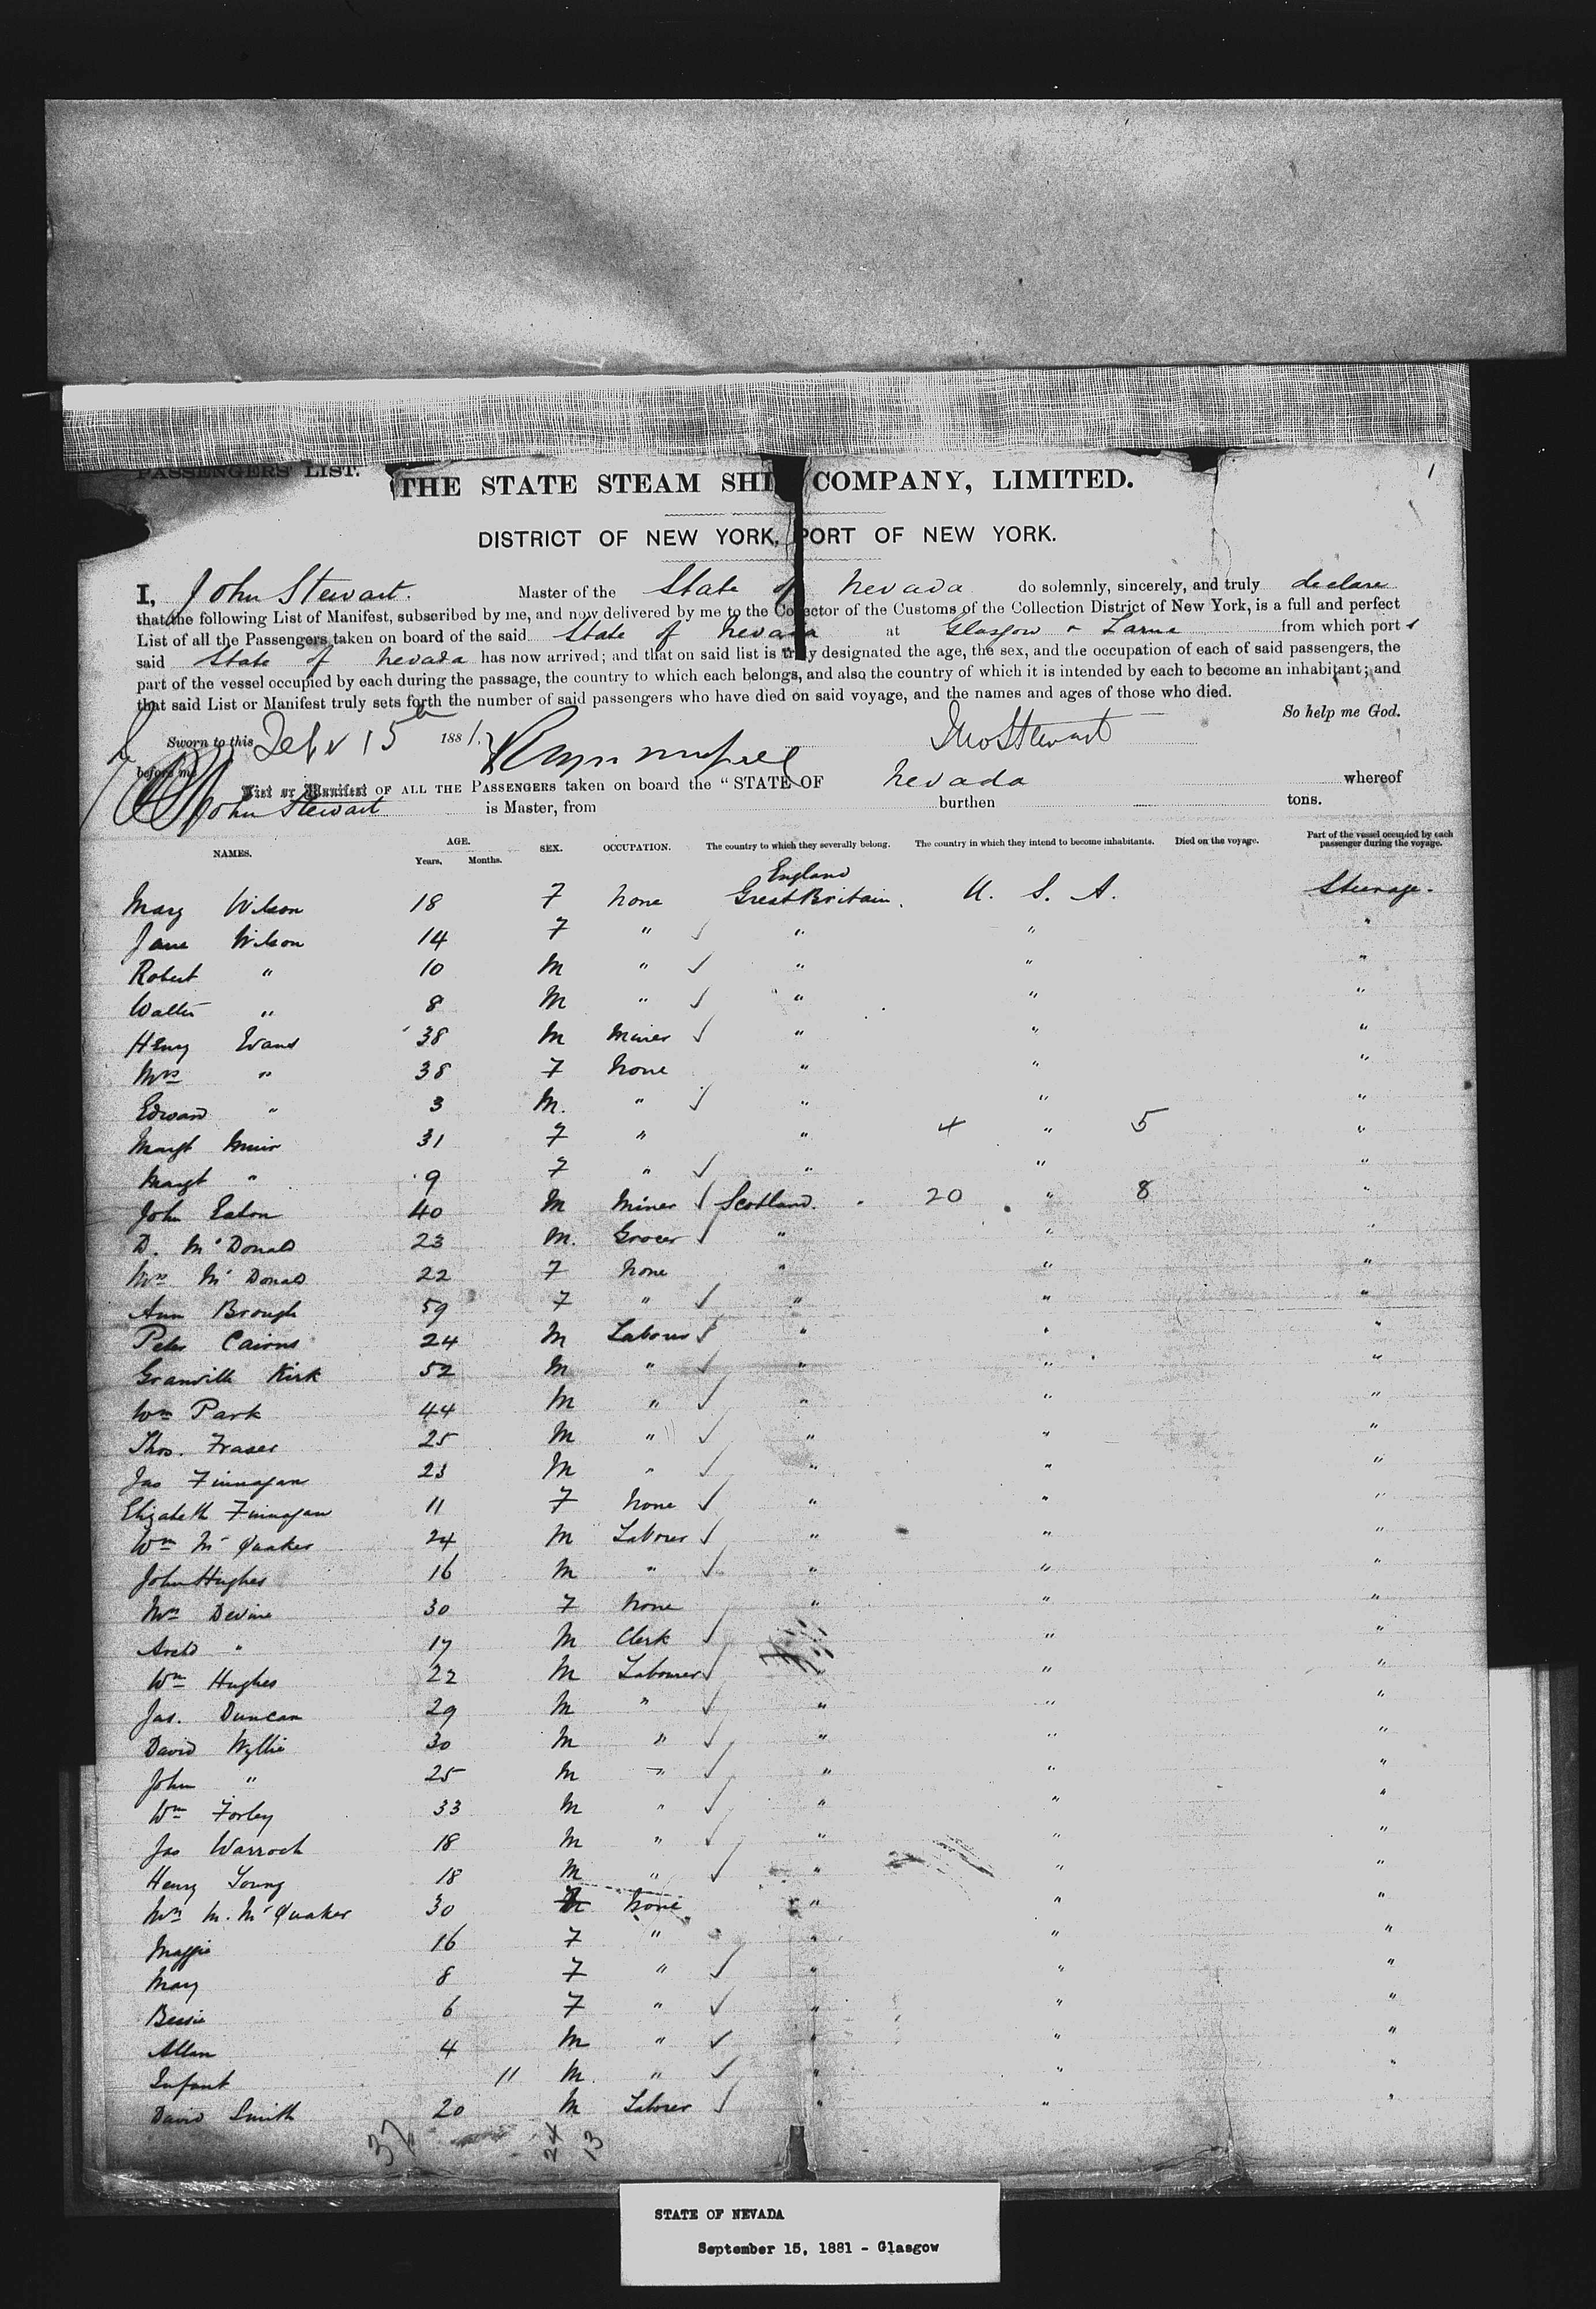 PASSENGERS' LIST.
1
THE STATE STEAM SHI COMPANY, LIMITED.
DISTRICT OF NEW YORK, PORT OF NEW YORK.
I, John Stewart. Master of the State of Nevada do solemnly, sincerely, and truly declare
that the following List of Manifest, subscribed by me, and now delivered by me to the Collector of the Customs of the Collection District of New York, is a full and perfect
List of all the Passengers taken on board of the said State of Nevada at Glasgow & Larne from which ports
said State of Nevada has now arrived; and that on said list is truly designated the age, the sex, and the occupation of each of said passengers, the
part of the vessel occupied by each during the passage, the country to which each belongs, and also the country of which it is intended by each to become an inhabitant; and
that said List or Manifest truly sets forth the number of said passengers who have died on said voyage, and the names and ages of those who died.
So help me God.
Sworn to this Septr 15th 1881. Jno Stewart
before me
List or Manifest OF ALL THE PASSENGERS taken on board the "STATE OF Nevada whereof
John Stewart is Master, from burthen tons.
NAMES. AGE. Years, Months. SEX. OCCUPATION. The country to which they severally belong. The country in which they intend to become inhabitants. Died on the voyage. Part of the vessel occupied by each passenger during the voyage.
England
Mary Wilson 18 F None Great Britain. U. S. A. Steerage.
Jane Wilson 14 F " " " "
Robert " 10 M " " " "
Walter " 8 M " " " "
Henry Evans 38 M Miner " " "
Mrs " 38 F None " " "
Edward " 3 M. " " " "
Margt Muir 31 F " " 4 " 5 "
Margt " 9 F " " " "
John Eaton 40 M Miner Scotland. 20 " 8 "
D. McDonald 23 M. Grocer " " "
Mrs McDonald 22 F None " " "
Ann Brough 59 F " " " "
Peter Cairns 24 M Labourer " " "
Granville Kirk 52 M " " " "
Wm Park 44 M " " " "
Thos. Fraser 25 M " " " "
Jas Finnagan 23 M " " " "
Elizabeth Finnagan 11 F None " " "
Wm McQuaker 24 M Laborer " " "
John Hughes 16 M " " " "
Mrs Devine 30 F None " " "
Archd " 17 M Clerk " "
Wm Hughes 22 M Labourer " " "
Jas. Duncan 29 M " " " "
David Wyllie 30 M " " " "
John " 25 M " " " "
Wm Forley 33 M " " " "
Jas Warroch 18 M " " " "
Henry Young 18 M " " " "
Mrs M. McQuaker 30 None " " "
Maggie 16 F " " " "
Mary 8 F " " " "
Bessie 6 F " " " "
Allan 4 M " " " "
Infant 11 M. " " " "
David Smith 20 M Laborer " " "
37 24 13
STATE OF NEVADA
September 15, 1881 - Glasgow